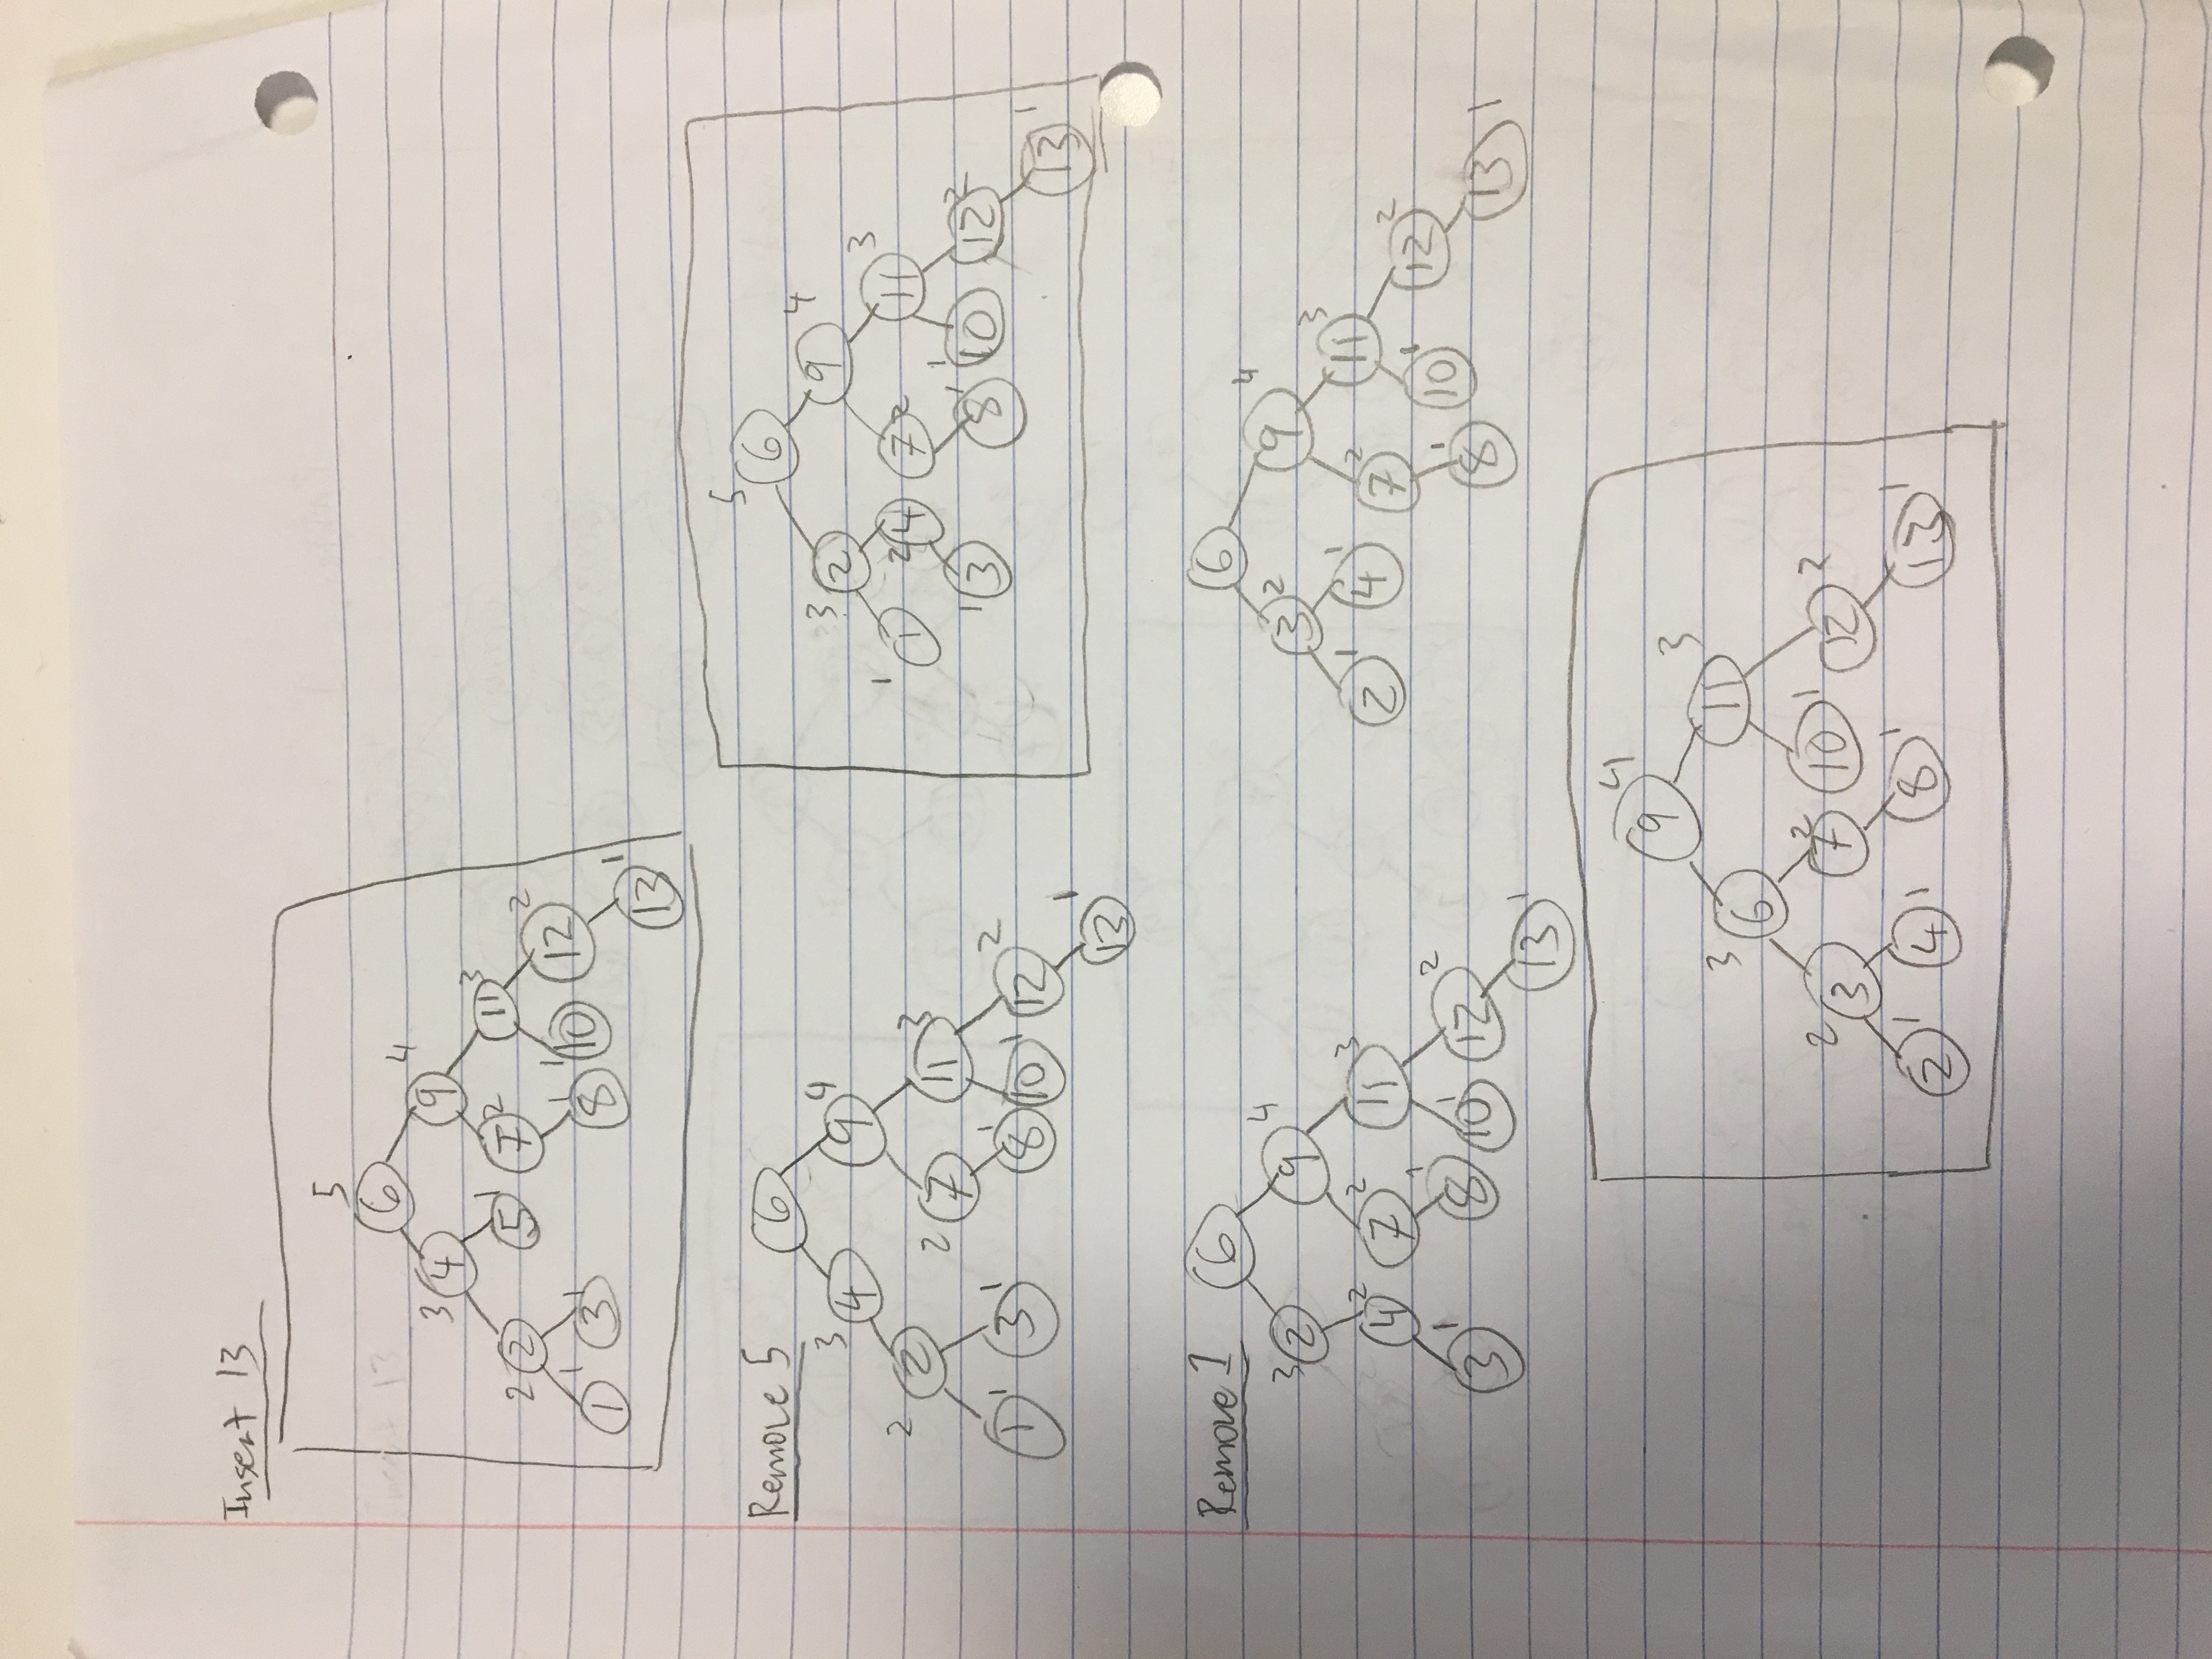 Insert 13
5
6
3 4 9 4
2 2 5 1 7 2 11 3
1 1 3 1 8 1 1 10 12 2
13 1
Remove 5
6
3 4 9 4
2 2 2 7 11 3
1 1 3 1 8 1 10 1 12 2
13 1
5 6
3 2 9 4
1 1 2 4 7 2 11 3
1 3 8 1 1 10 12 2
13 1
Remove 1
6
3 2 9 4
4 2 7 2 11 3
3 1 8 1 10 1 12 2
13 1
6
3 2 9 4
2 1 4 1 7 2 11 3
8 1 10 1 12 2
13 1
9 4
3 6 11 3
2 3 7 2 10 1 12 2
2 1 4 1 8 1 13 1